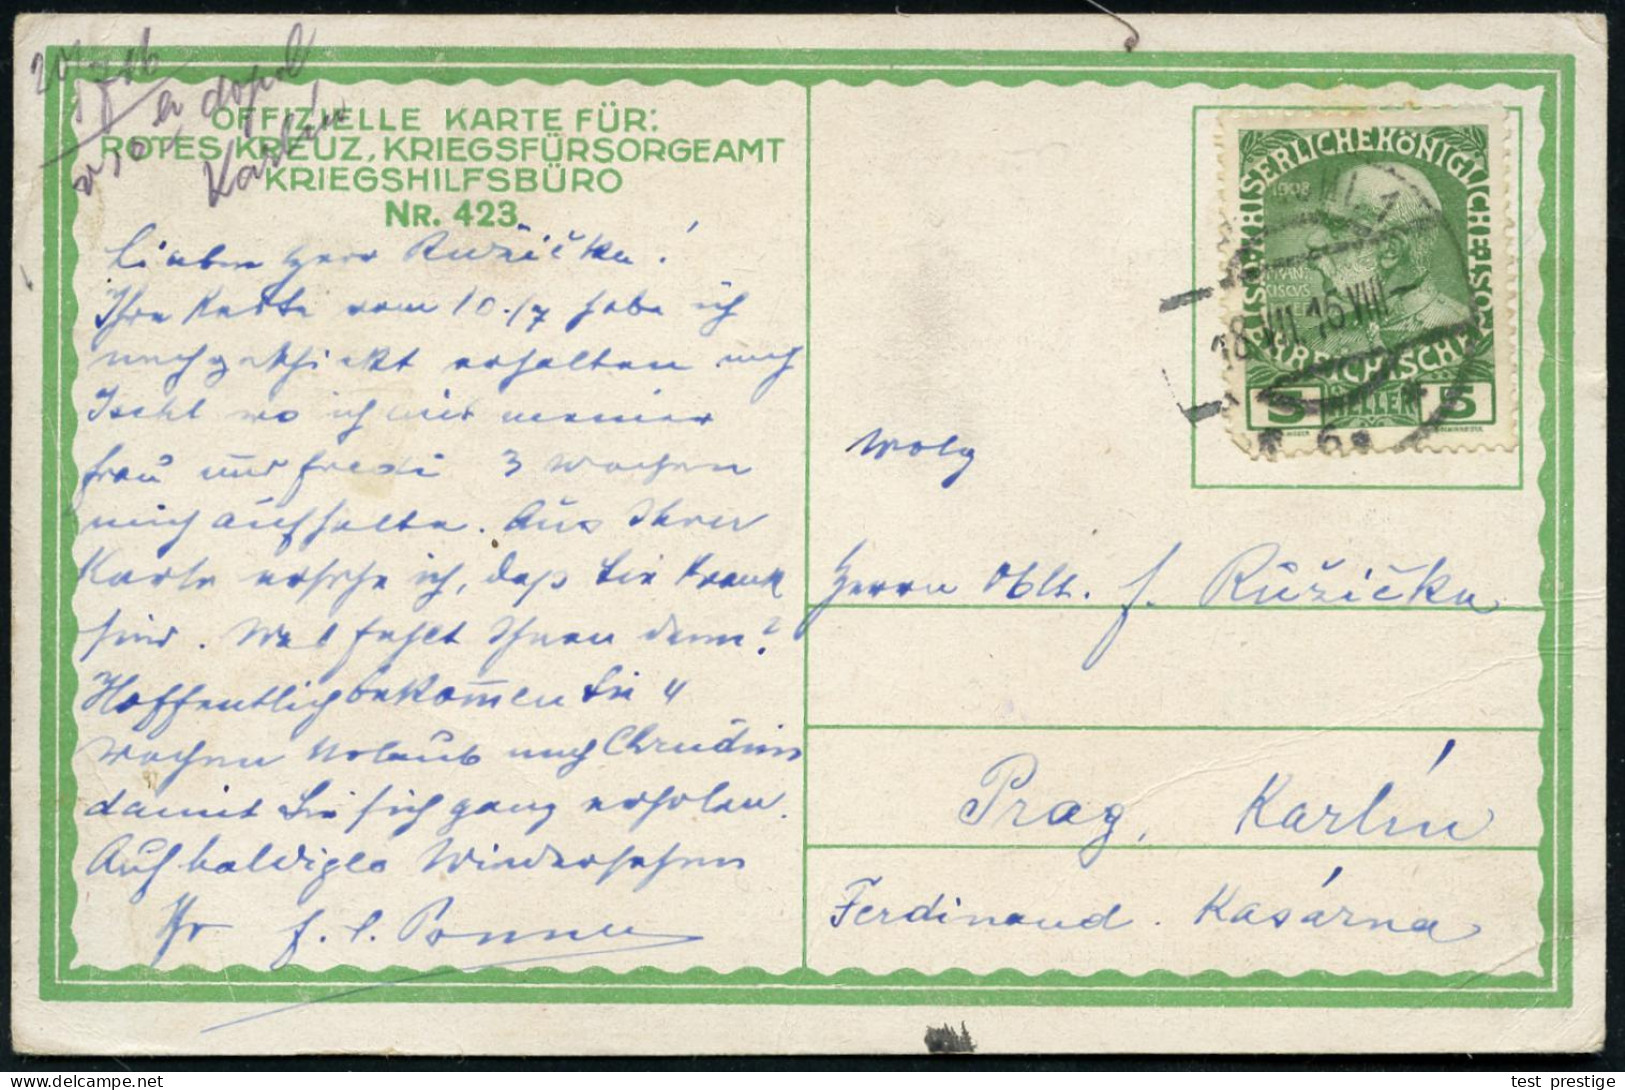 20/7 16
dopol
Karlín
OFFIZIELLE KARTE FÜR:
ROTES KREUZ, KRIEGSFÜRSORGEAMT
KRIEGSHILFSBÜRO
NR. 423
Lieber Herr Růžička!
Ihre Karte vom 10./7 habe ich
nachgeschickt erhalten nach
Ischl wo ich mit meiner
Frau und Fredi 3 Wochen
mich aufhalte. Aus Ihrer
Karte ersehe ich, daß Sie krank
sind. Was fehlt Ihnen denn?
Hoffentlich bekom̄en Sie 4
Wochen Urlaub nach Chrudim
damit Sie sich ganz erholen.
Auf baldiges Wiedersehen
Ihr
KAISERLICHE KÖNIGLICHE ÖSTERREICHISCHE POST
1908
FRAN
CISCVS
5 HELLER 5
18.VII.16 VIII
6a
Wolg
Herrn Oblt. F. Růžička
Prag, Karlín
Ferdinand. Kasárna
test prestige